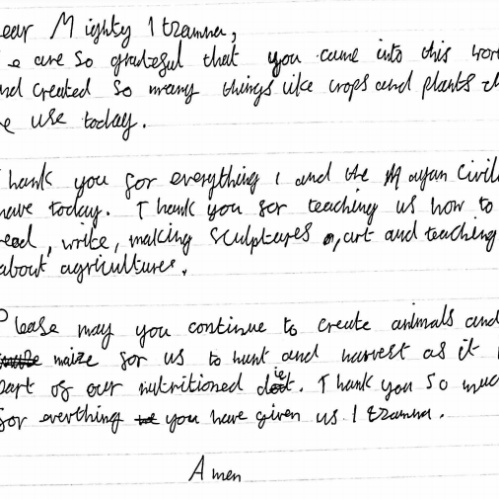 ear Mighty Itzamna,
e are so grateful that you came into this wor
nd created so many things like crops and plants th
e use today.
hank you for everything I and the Mayan Civili
have today. Thank you for teaching us how to
read, write, making sculptures, art and teaching
about agricultures.
Please may you continue to create animals and
maize for us to hunt and harvest as it
part of our nutritioned diet. Thank you so much
for everthing you have given us Itzamna.
Amen